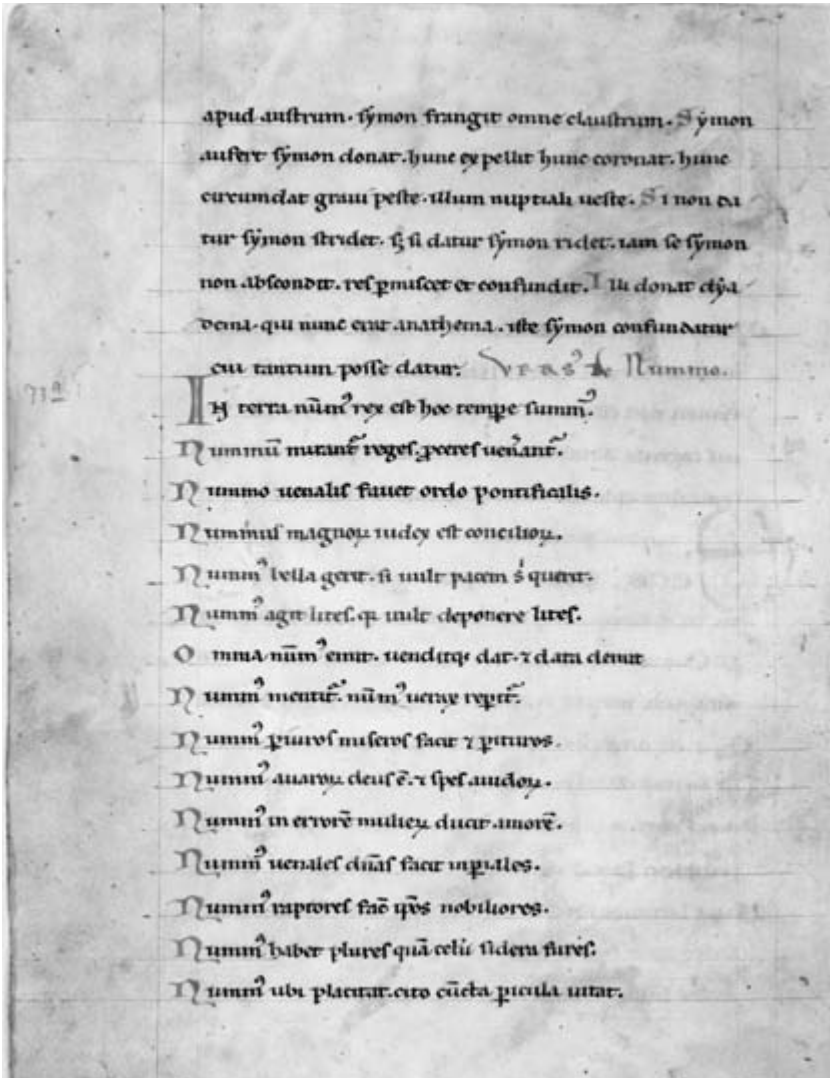 apud austrum. symon frangit omne claustrum. Symon
aufert symon donat. hunc expellit hunc coronat. hunc
circumdat graui peste. illum nuptiali ueste. Si non da
tur symon stridet. s; si datur symon ridet. iam se symon
non abscondit. res ꝑmiscet et confundit. Illi donat dya
dema. qui nunc erat anathema. iste symon confundatur
cui tantum posse datur. de Nummo.
IN terra nūmꝰ rex est hoc temꝑe summꝰ.
Nummū mirant᷑ reges. ꝓceres uen̄ant᷑.
Nummo uenalis fauet ordo pontificalis.
Nummus magnoꝝ iudex est concilioꝝ.
Nummꝰ bella gerit. si uult pacem s querit.
Nummꝰ agit lites. q̄ uult deponere lites.
Omnia nūmꝰ emit. uenditqꝫ dat. ⁊ data demit
Nummꝰ mentit᷑. nūmꝰ uerax reꝑit᷑.
Nummꝰ ꝑiuros miseros facit ⁊ ꝑituros.
Nummꝰ auaroꝝ deus ē. ⁊ spes auidoꝝ.
Nummꝰ in errorē mulieꝝ ducit amorē.
Nummꝰ uenales dn̄as facit inꝑiales.
Nummꝰ raptores fac̄ nobiliores.
Nummꝰ habet plures quā celū sidera fures.
Nummꝰ ubi placitat. cito cūcta ꝑicula uitat.